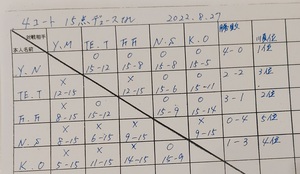 4コート 15点デュース有 2022.8.27
対戦相手 本人名前 Y.M TE.T 万.万 N.S K.O 勝敗 順位
Y.N 〇 15-12 〇 15-8 〇 15-8 〇 15-5 4-0 1位
TE.T × 12-15 × 12-15 〇 15-6 〇 15-11 2-2 3位
万.万 × 8-15 〇 15-12 〇 15-9 〇 15-14 3-1 2位
N.S × 8-15 × 6-15 × 9-15 × 9-15 0-4 5位
K.O × 5-15 × 11-15 × 14-15 〇 15-9 1-3 4位